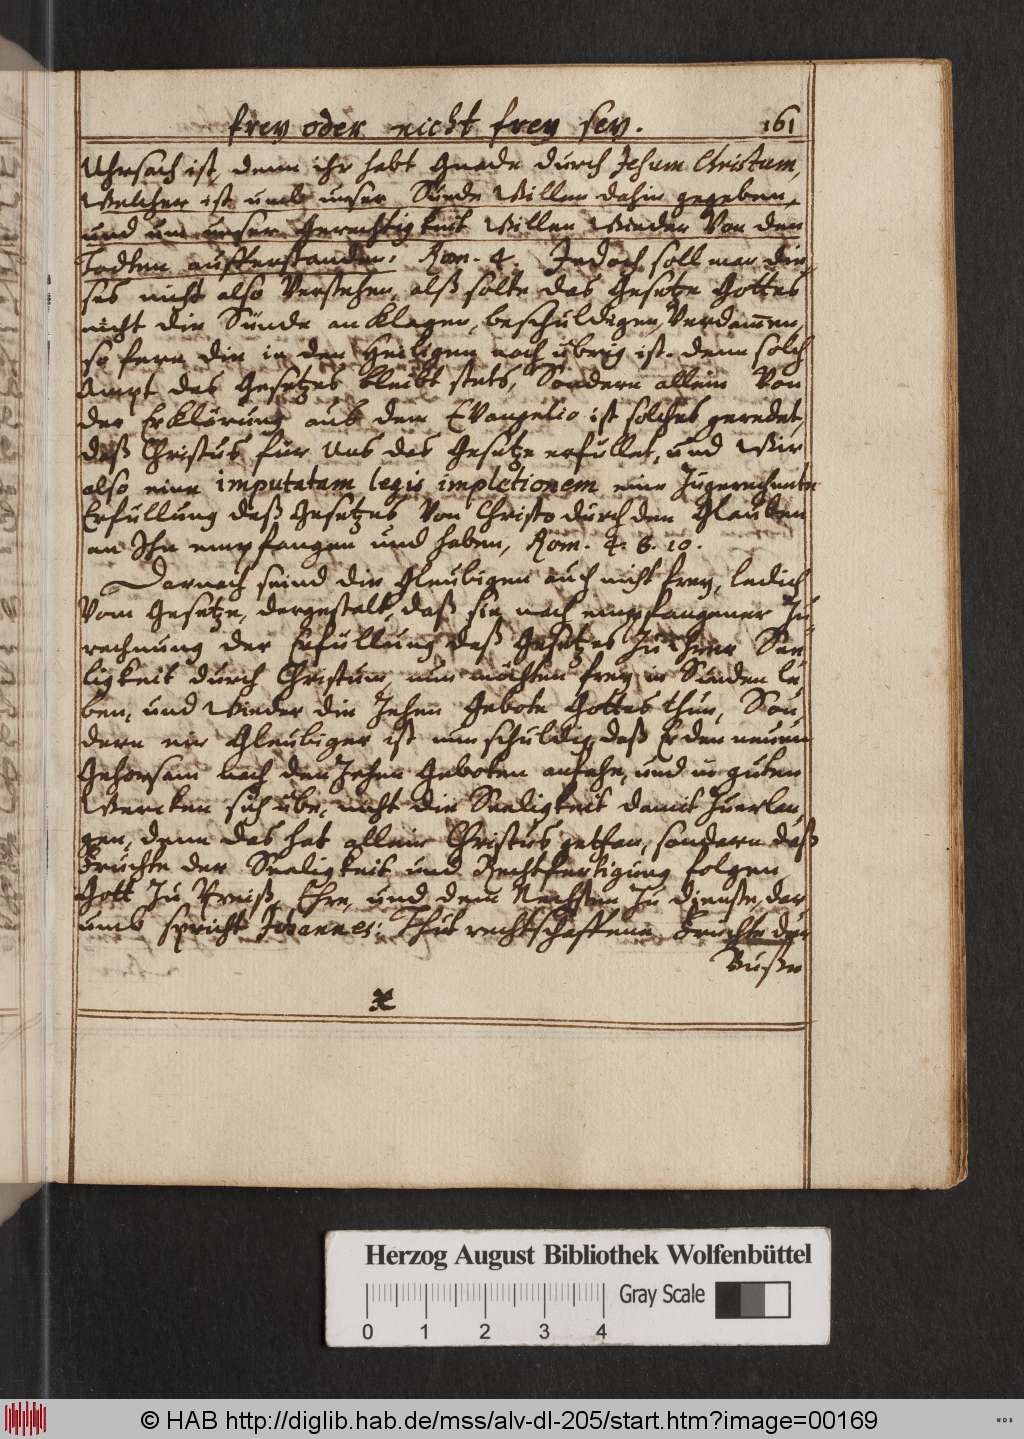 frey oder nicht frey sey. 161
Uhrsach ist, denn ihr habt Gnade durch Jesum Christum,
Welcher ist umb unser Sünde Willen dahin gegeben,
und um unser Gerechtigkeit Willen Wieder Von den
Todten aufferstanden. Rom. 4. Jedoch soll man die
ses nicht also Verstehen, alß solte das Gesetze Gottes
nicht die Sünde anklagen, beschuldigen, Verdammen,
so fern die in den Heiligen noch übrig ist. denn solch
Ampt des Gesetzes bleibt stets, Sondern allein Von
der Erklärung auß dem Evangelio ist solches geredet,
daß Christus für Uns das Gesetze erfüllet, und Wir
also eine imputatam legis impletionem eine Zugerechnete
Erfüllung deß Gesetzes Von Christo durch den Glauben
an Ihn empfangen und haben, Rom. 4. 8. 10.
Darnach seind die Gleubigen auch nicht frey, ledich
Vom Gesetze, dergestalt, daß sie nach empfangener Zu
rechnung der Erfüllung deß Gesetzes Zu Ihrer See
ligkeit durch Christum nun möchten frey in Sünden le
ben, und Wieder die Zehen Gebote Gottes thun, Son
dern ein Gleubiger ist nun schuldig, daß Er den neuen
Gehorsam nach den Zehen Geboten anfahe, und in guten
Wercken sich übe, nicht die Seeligkeit damit Zuerlan
gen, denn das hat allein Christus gethan, sondern daß
Früchte der Seeligkeit und Rechtfertigung folgen
Gott Zu Preiß, Ehre, und dem Nechsten Zu dienste, dar
umb spricht Johannes: Thut rechtschaffene Früchte der
Buße
Herzog August Bibliothek Wolfenbüttel
Gray Scale
0 1 2 3 4
© HAB http://diglib.hab.de/mss/alv-dl-205/start.htm?image=00169